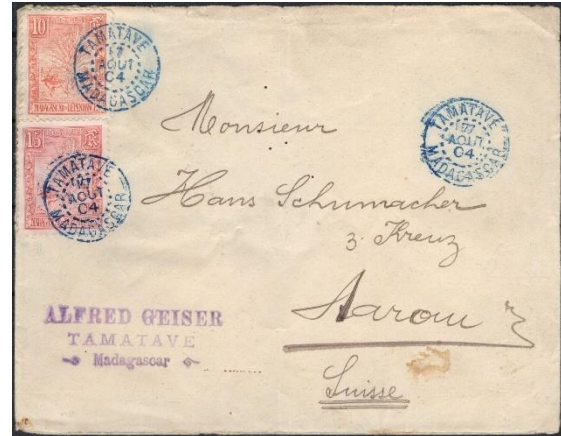 10
MADAGASCAR
TAMATAVE
17
AOUT
04
MADAGASCAR
15
TAMATAVE
17
AOUT
04
MADAGASCAR
TAMATAVE
17
AOUT
04
MADAGASCAR
Monsieur
Hans Schumacher
z. Kreuz
Aarau
Suisse
ALFRED GEISER
TAMATAVE
Madagascar